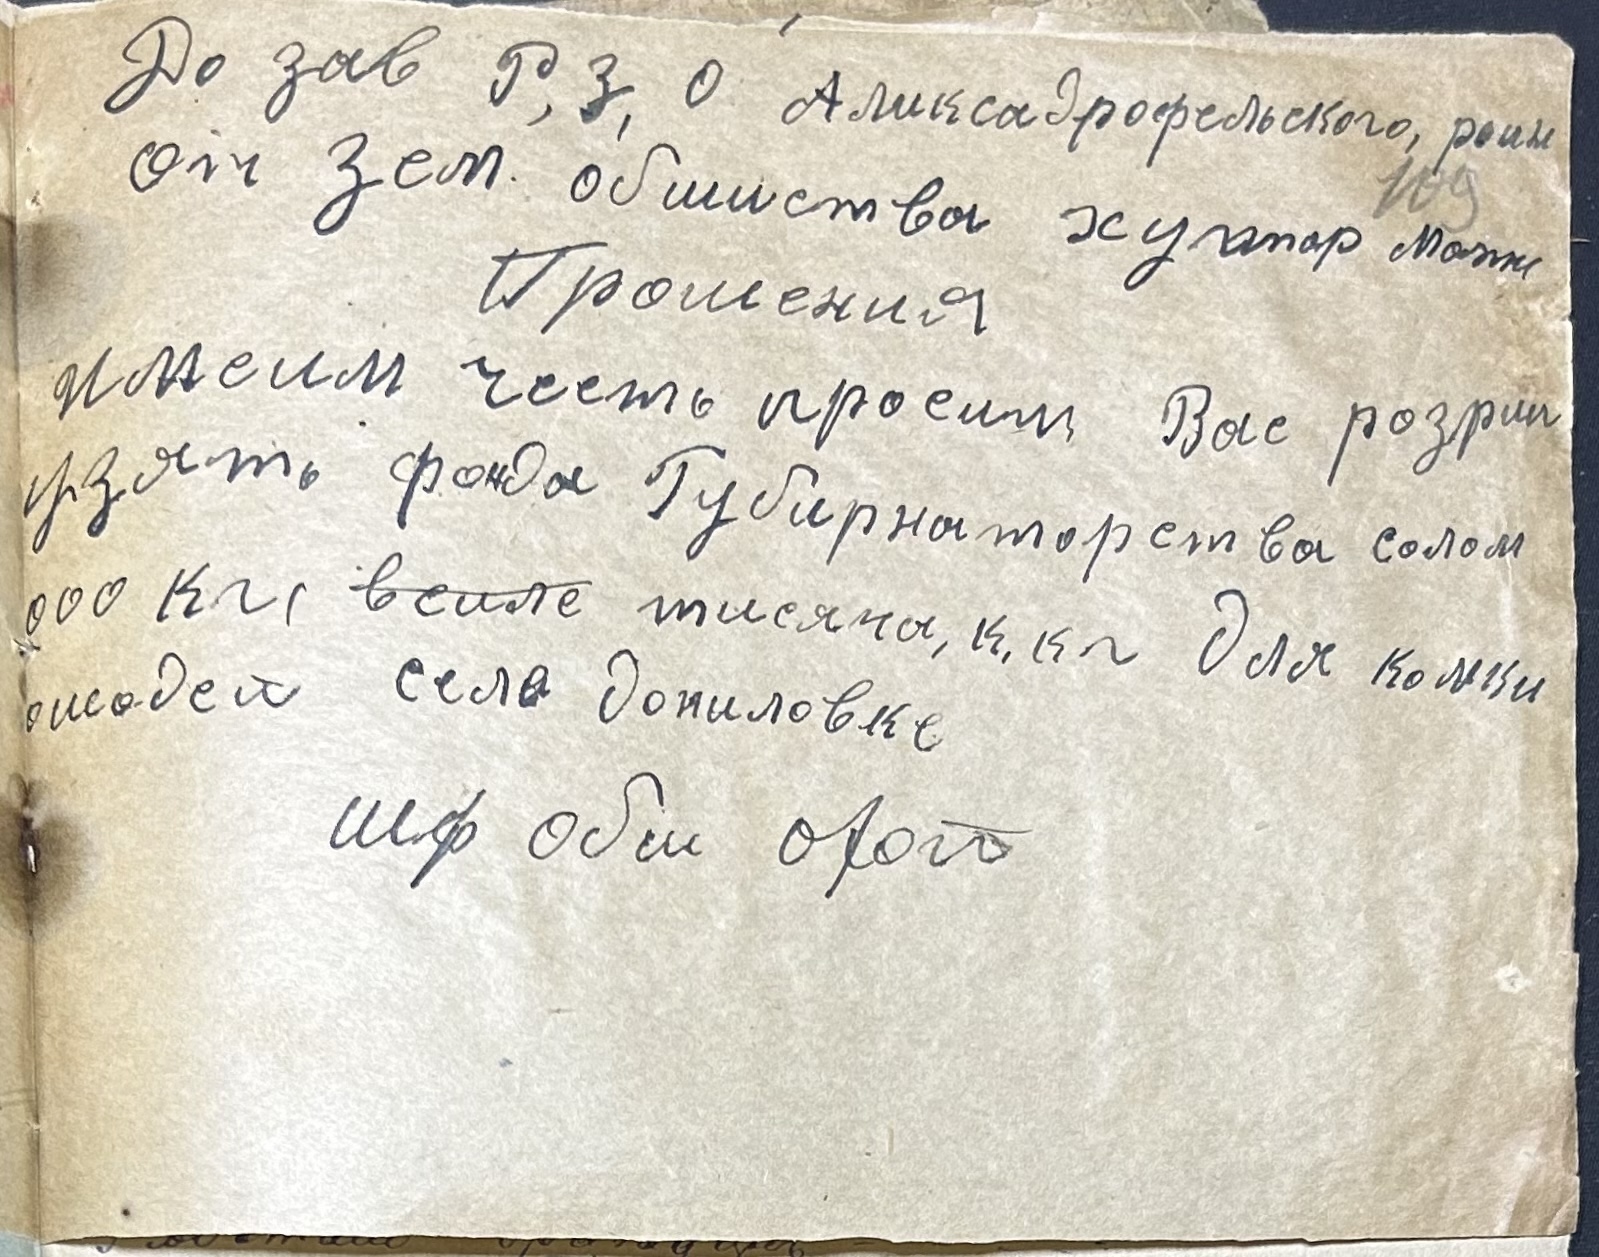 До зав Р, З, О Аликсадрофельского, роин
от зем. обшиства хутор
109
Прошения
имеим честь просить Вас розриш
узять фонда Губирнаторства солом
000 кг, веиле тисяча, к, кг для комки
ошодей села Дониловке
шф обш